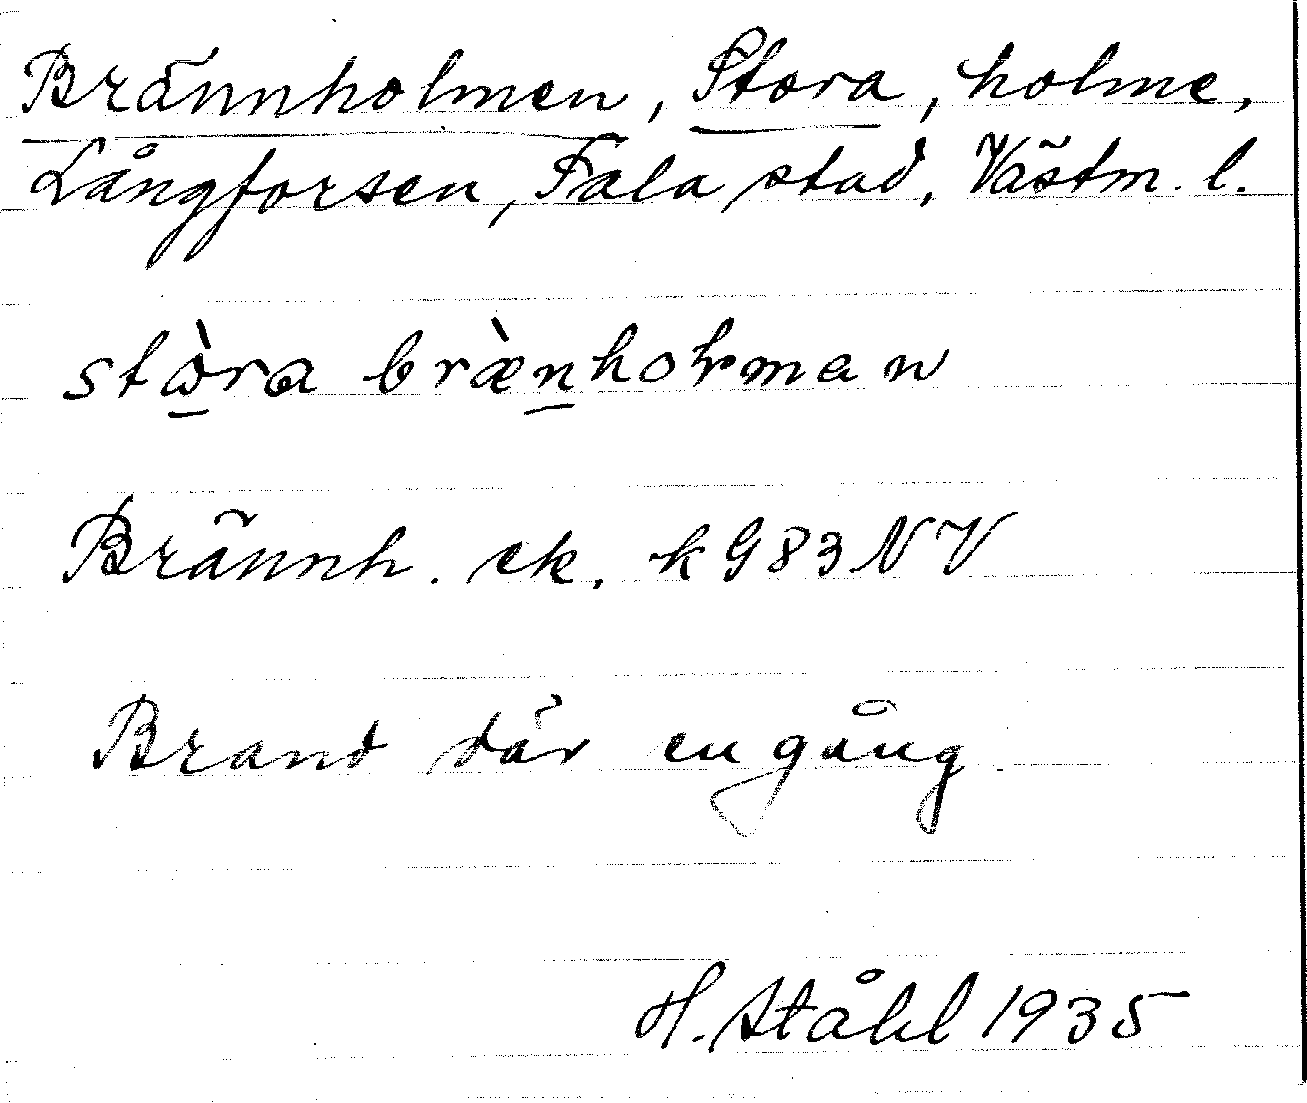 Brännholmen, Stora, holme,
Långforsen, Fala stad, Västm. l.
stò̠ra bræ̀n̠hoɫman
Brännh. ek. k G83NV
Brand där en gång.
H. Ståhl 1935